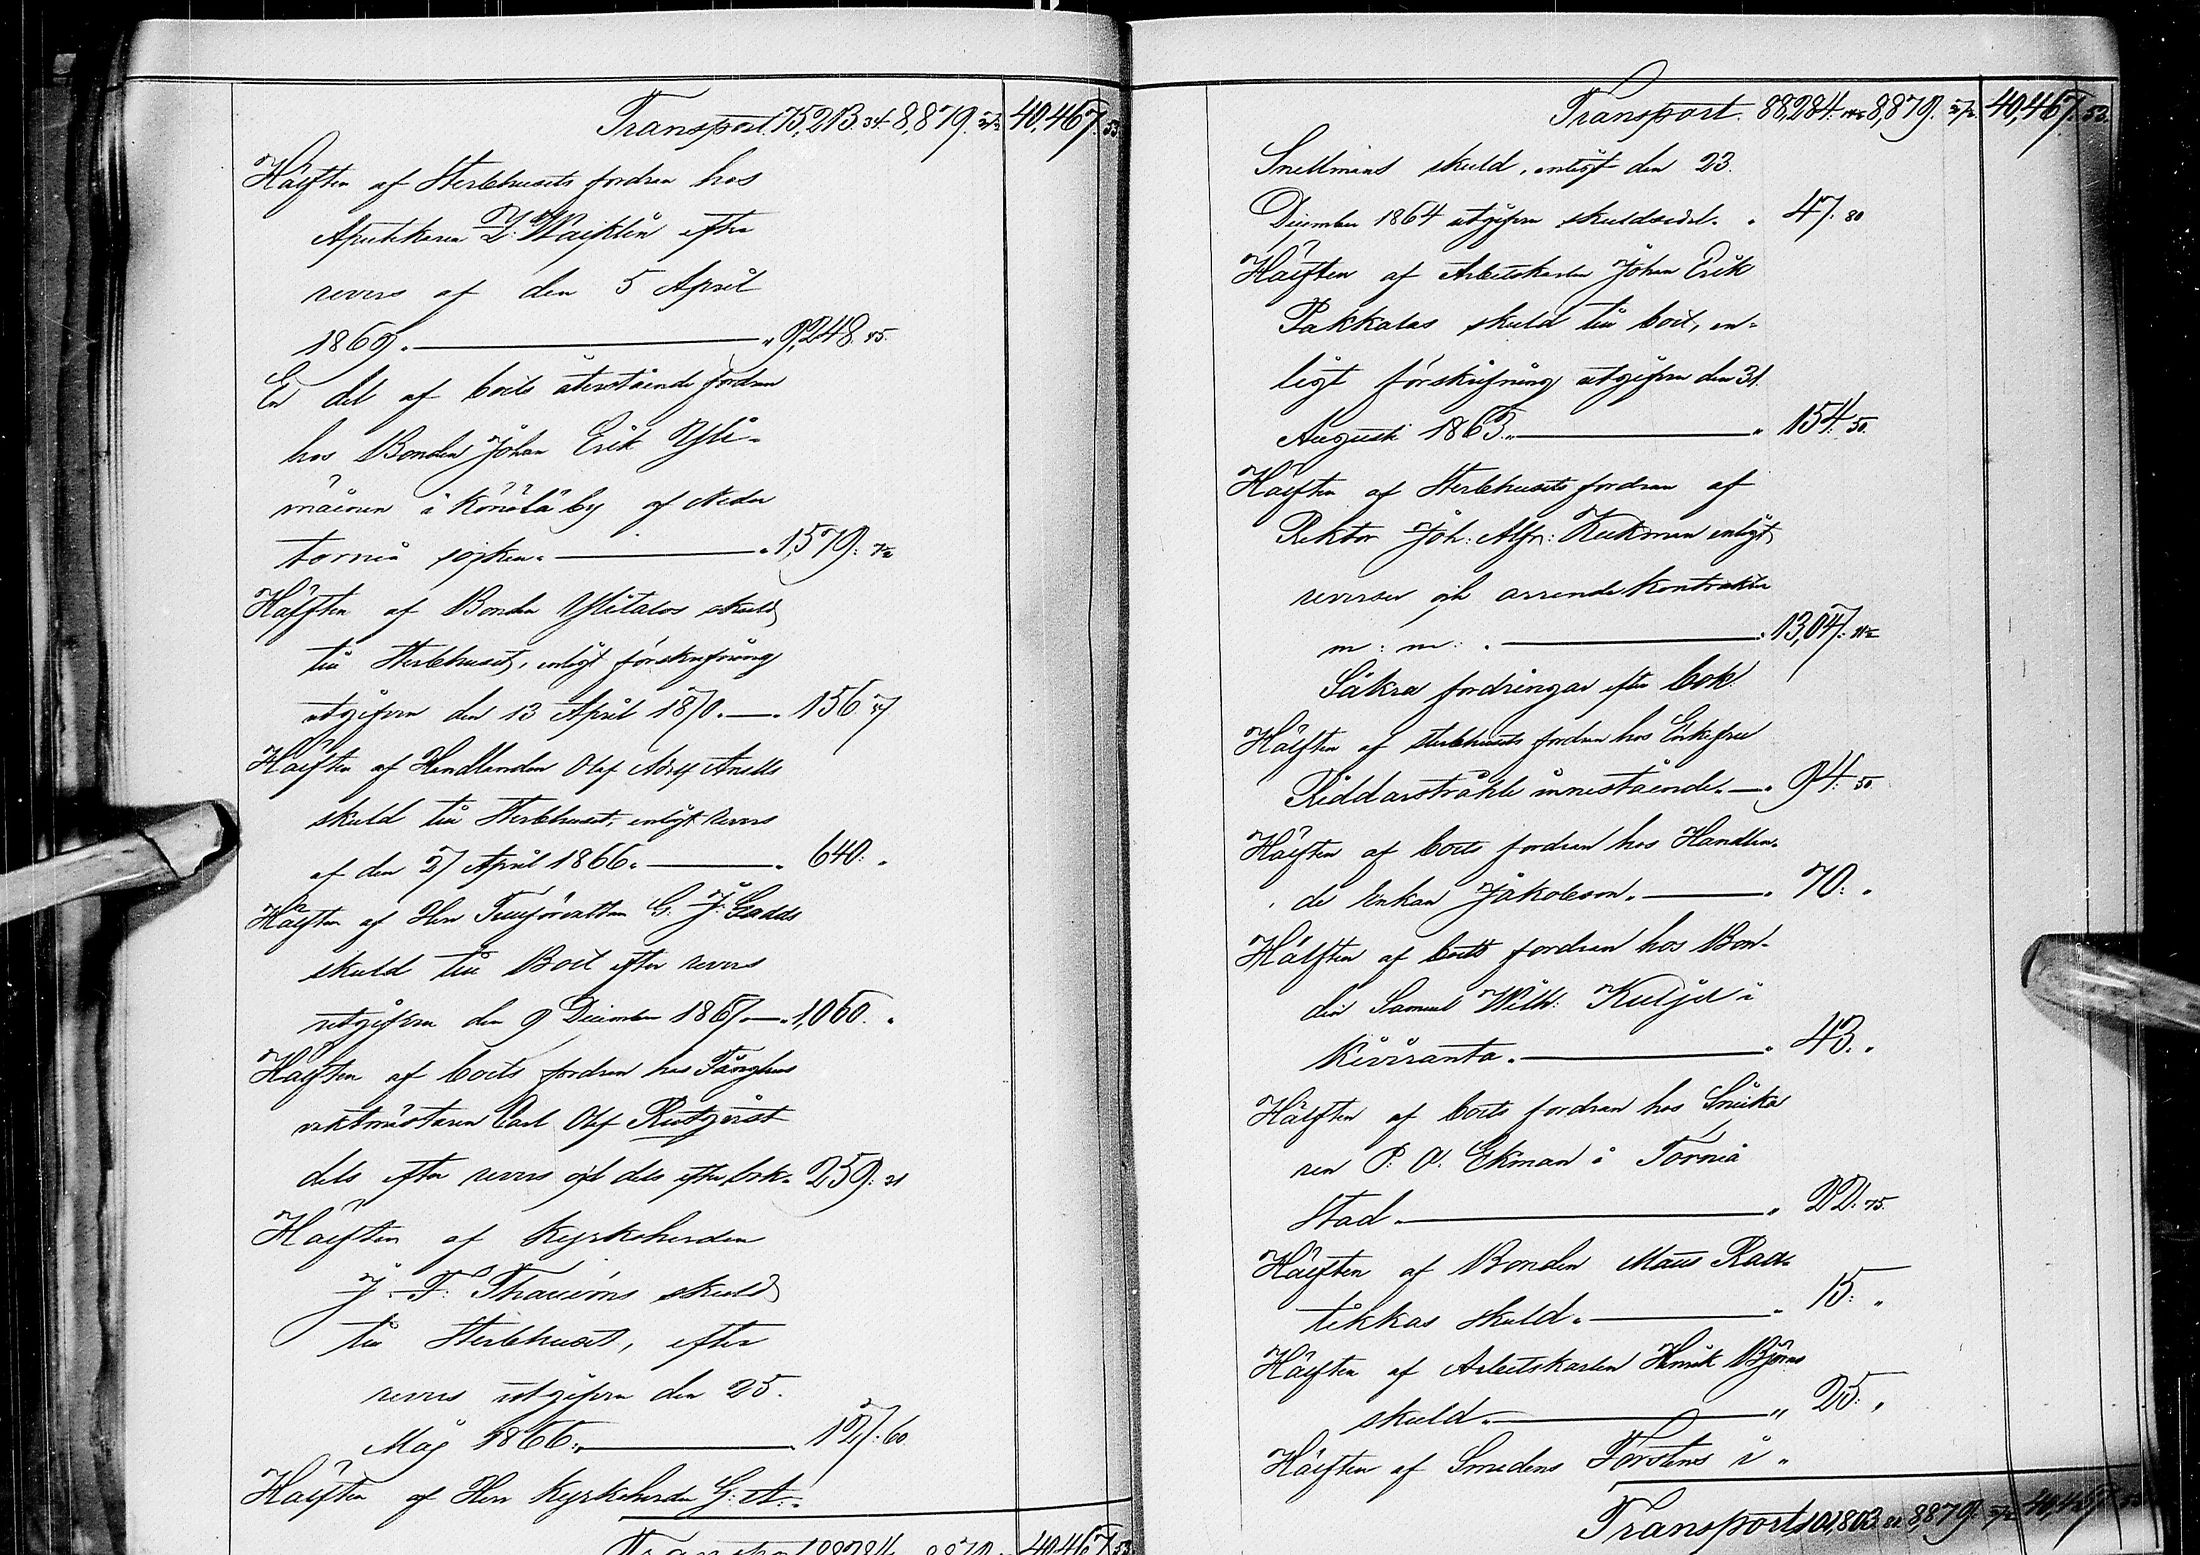 Transport. 75,213. 34. 8,879. 40,467. 53.
Hälften af Sterbhusets fordran hos
Apothekaren efter
revers af den 5 April
1869. — " 9,248. 85.
En del af boets återstående fordran
hos Bonden Johan Erik Yli-
mäinen i Könölä by af Neder
torneå socken. — " 1,579:
Hälften af Bonden Ylitalos skuld
till Sterbhuset, enligt förskrifning
utgifven den 13 April 1870. — " 156 57
Hälften af Handlanden Olof Adolf Anells
skuld till Sterbhuset, enligt revers
af den 27 April 1866. — " 640: "
Hälften af Herr Tullförvaltaren G: J: Gadds
skuld till Boet efter revers
utgifven den 9 December 1867. — " 1,060. "
Hälften af boets fordran hos Fånghus
vaktmästaren Carl Olof
dels efter revers och dels efter bok. 259: 21
Hälften af Kyrkoherden
J. F. Thauvóns skuld
till Sterbhuset, efter
revers utgifven den 25.
Maj 1866. — 127: 60
Hälften af Herr Kyrkoherden G: A:
Transport 88284 8,879 40,467 53
Transport. 88,284. 8,879. 40,467. 53.
Snellmans skuld, enligt den 23.
December 1864 utgifven skuldsedel. " 47: 80
Hälften af Arbetskarlen Johan Erik
Pakkalas skuld till boet, en-
ligt förskrifning utgifven den 31
Augusti 1863. — " 154: 50.
Hälften af Sterbhusets fordran af
Rektor Joh: Alfr: Keckman enligt
reverser och arrende kontrakter
m: m: . — : 13,047:
Säkra fordringar efter bok.
Hälften af sterbhusets fordran hos Enkefru
Riddarstråhle innestående. — " 94: 50
Hälften af boets fordran hos Handlan-
de Enkan Jakobson. — " 70: "
Hälften af boets fordran hos Bon-
den Samuel Wilh: i
Kiviranta. — " 43. "
Hälften af boets fordran hos Snicka
ren P. A. Ekman i Torneå
Stad. — " 22: 75.
Hälften af Bonden Maus Rau-
tikkas skuld. — " 15: "
Hälften af Arbetskarlen Henrik Björns
skuld. — " 25: "
Hälften af Smedens Forstens i "
Transport 101,803. 82 8,879. 40,467. 53